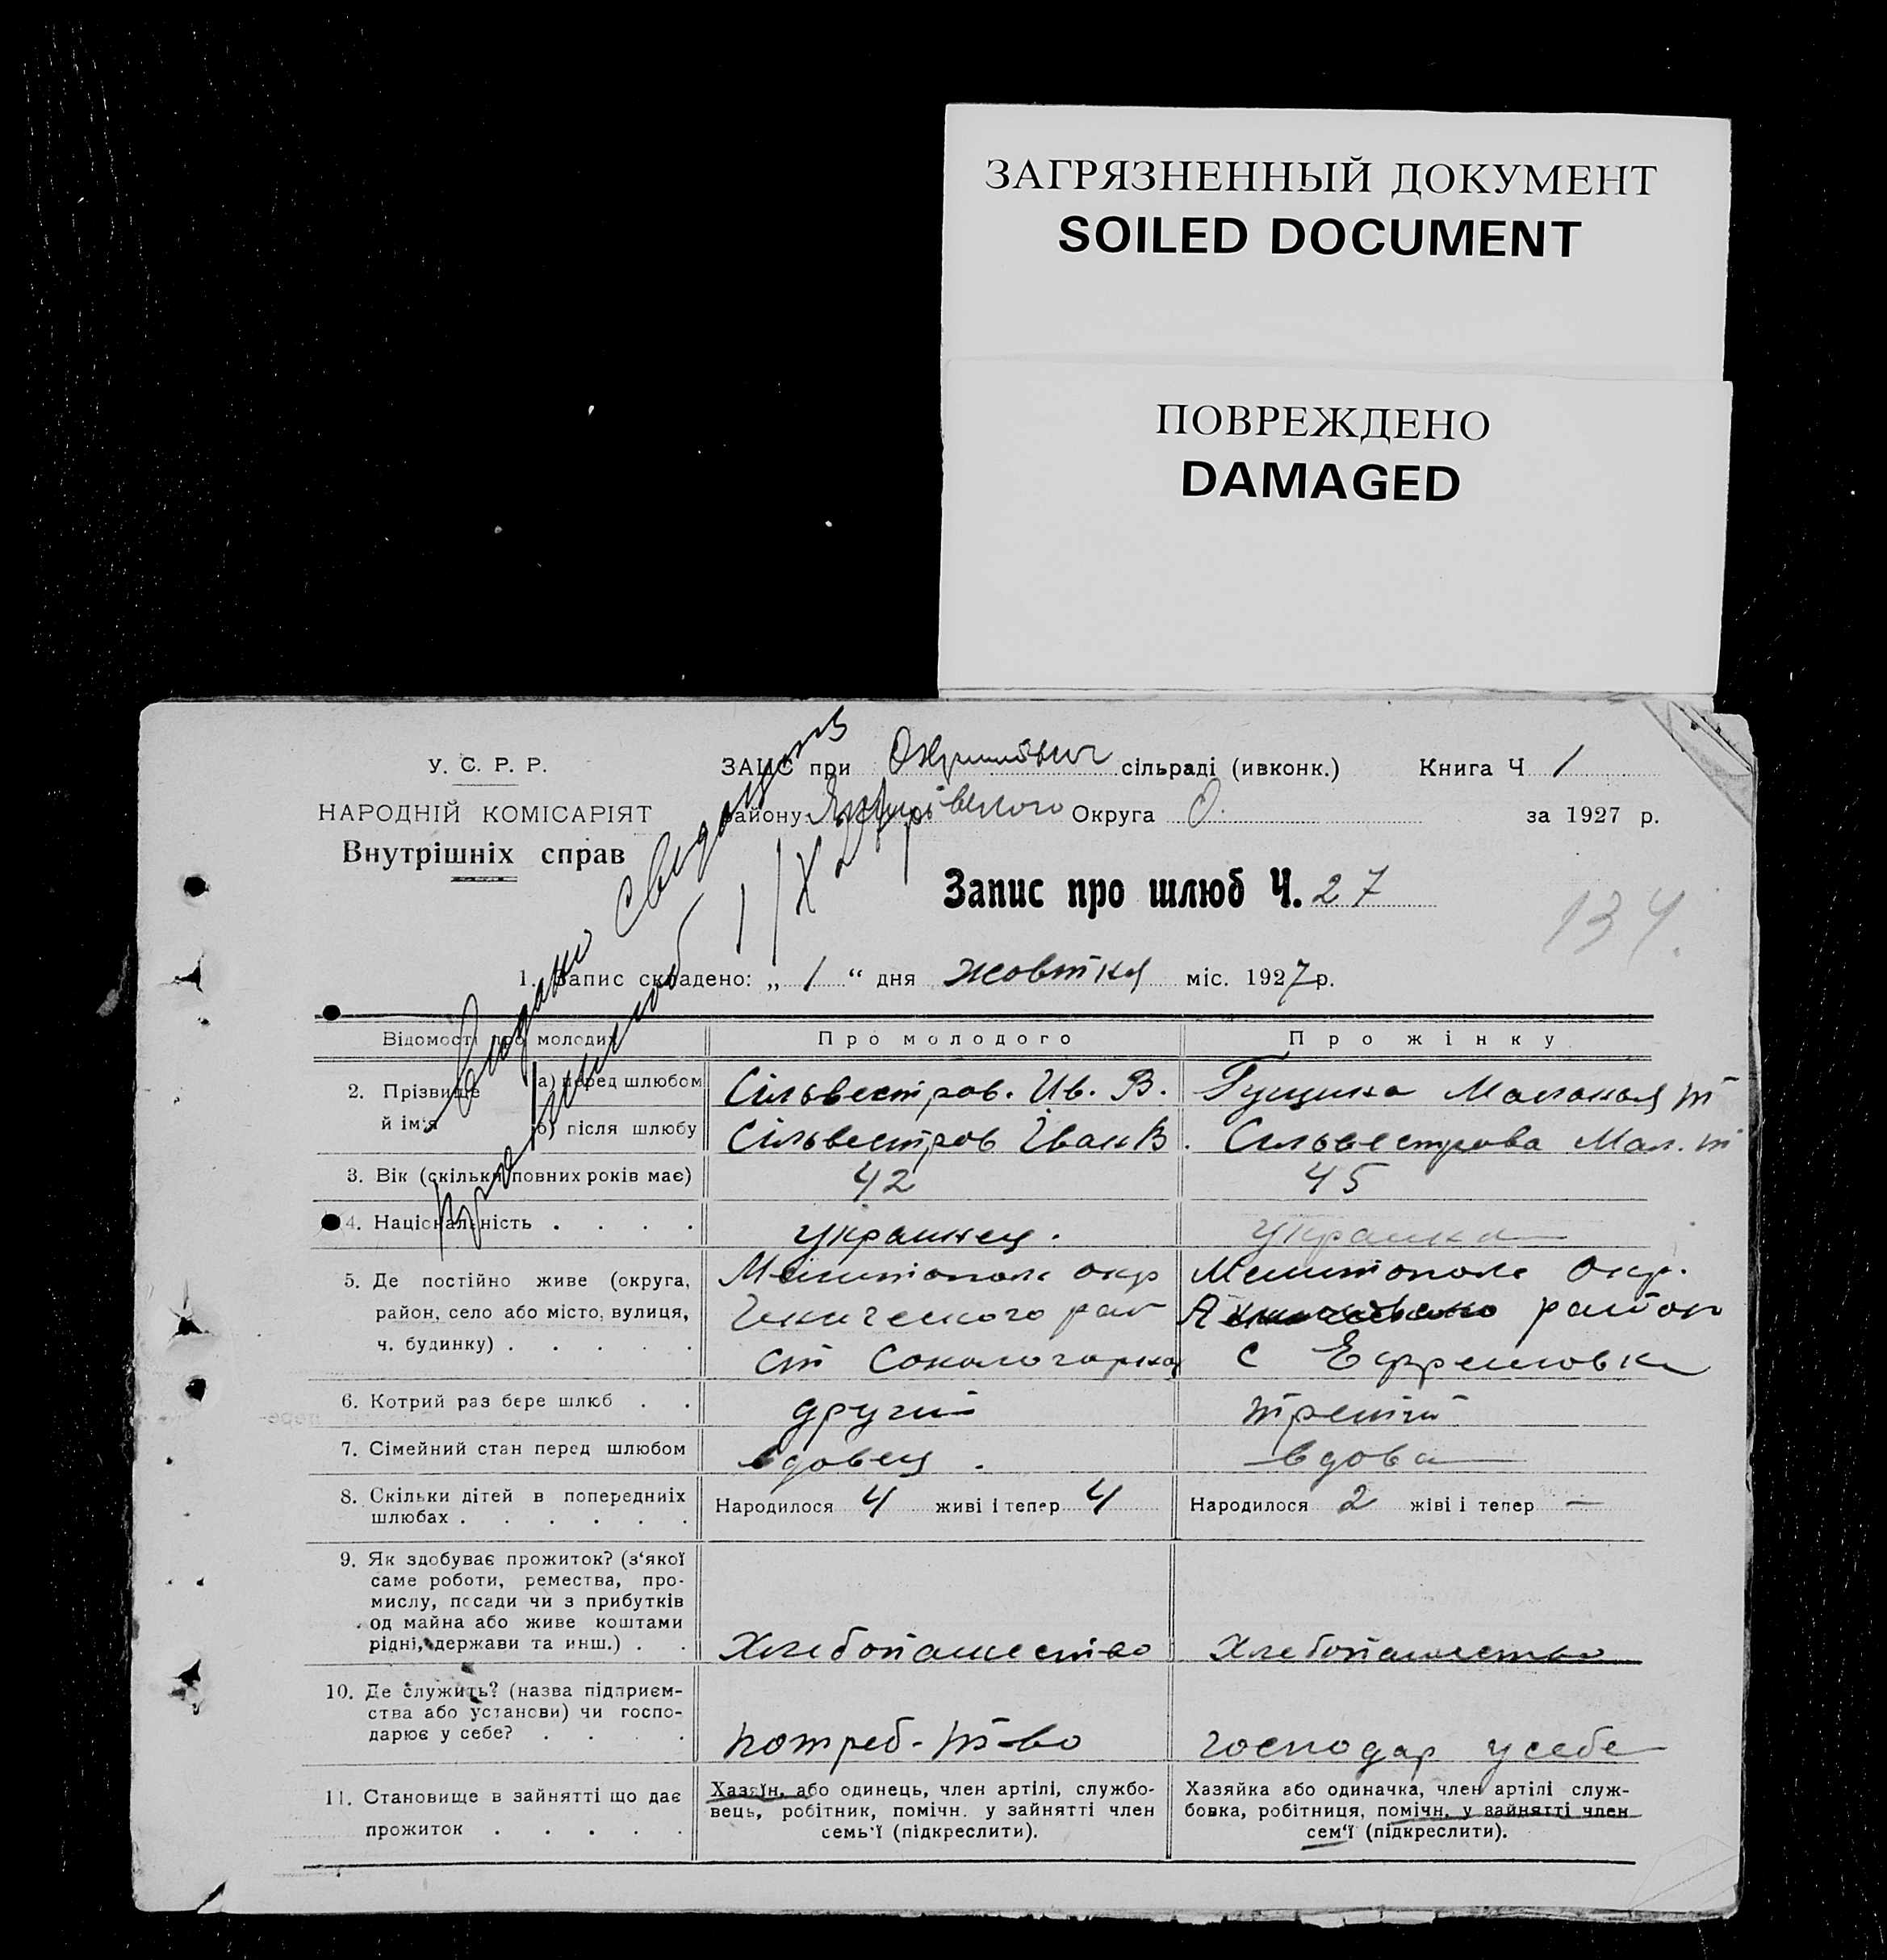 ЗАГРЯЗНЕННЫЙ ДОКУМЕНТ
SOILED DOCUMENT
ПОВРЕЖДЕНО
DAMAGED
У. С. Р. Р.
НАРОДНІЙ КОМІСАРІЯТ
Внутрішніх справ
ЗАГС при сільраді (ивконк.) Книга Ч 1
району Округа за 1927 р.
Запис про шлюб Ч. 27
134.
1. Запис складено: „ 1 “ дня жовтня міс. 1927 р.
Відомості про молодих
Про молодого
Про жінку
2. Прізвище й ім'я
а) перед шлюбом
Сільвестров. Ив. В.
Гущина Маланья Т
б) після шлюбу
Сільвестров Іван В.
Сильвестрова Мал. Т
3. Вік (скільки повних років має)
42
45
4. Національність . . . .
украинец.
украинка
5. Де постійно живе (округа,
район, село або місто, вулиця,
ч. будинку) . . . . .
Мелитополь окр
Генического рай
ст Сокологорная
Мелитополь Окр.
район
с Ефремовка
6. Котрий раз бере шлюб . .
другий
третій
7. Сімейний стан перед шлюбом
вдовец.
вдова
8. Скільки дітей в попередниіх
шлюбах . . . . . .
Народилося 4 живі і тепер 4
Народилося 2 жіві і тепер —
9. Як здобуває прожиток? (з‘якої
саме роботи, ремества, про-
мислу, посади чи з прибутків
од майна або живе коштами
рідні, держави та инш.) . .
Хлебопашество
Хлебопашество
10. Де служить? (назва підприєм-
ства або установи) чи госпо-
дарює у себе? . . . .
потреб-т-во
господар у себе
11. Становище в зайнятті що дає
прожиток . . . . .
Хазяїн, або одинець, член артілі, службо-
вець, робітник, помічн. у зайнятті член
семь'ї (підкреслити).
Хазяйка або одиначка, член артілі служ-
бовка, робітниця, помічн. у зайнятті член
сем‘ї (підкреслити).